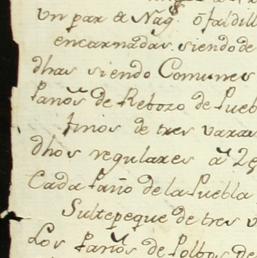 Un par de Nag.s ó faldill
encarnadas. siendo de
dhas siendo Comunes
Paños de Rebozo de Pueb
finos de tres varas
dhos regulares á 2
Cada Paño de la Puebla
Sultepeque de tres v
Los Paños de Polbos de